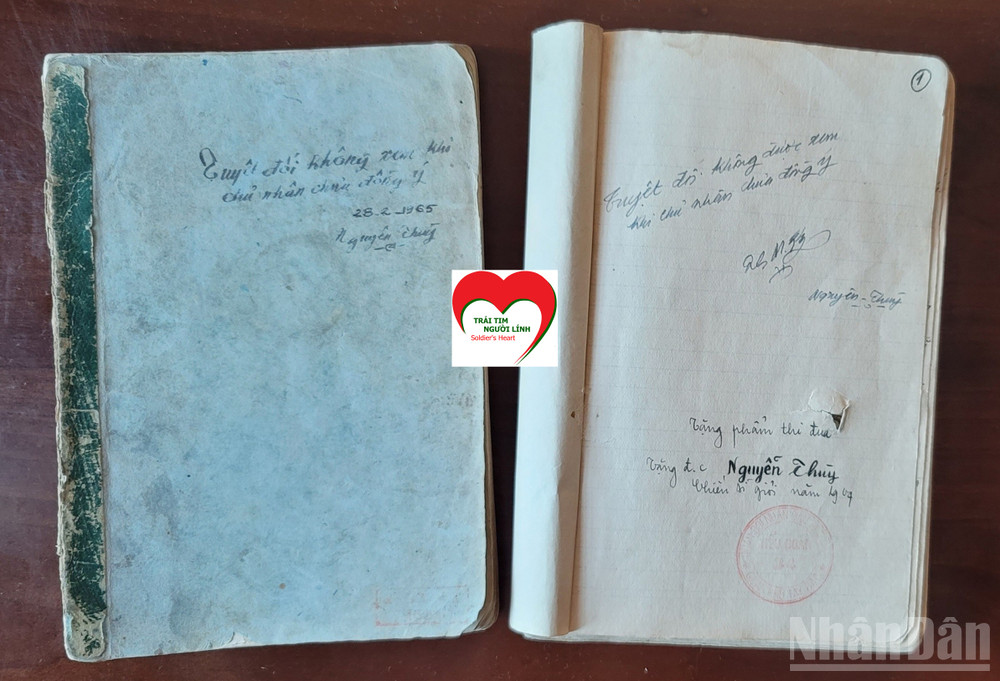 Tuyệt đối không xem khi
chủ nhân chưa đồng ý
28-2-1965
Nguyễn Thùy
TRÁI TIM
NGƯỜI LÍNH
Soldier's Heart
1
Tuyệt đối không được xem
khi chủ nhân chưa đồng ý
Nguyễn-Thùy
Tặng phẩm thi đua
Tặng đ.c Nguyễn Thùy
Chiến sĩ giỏi năm
NhânDân